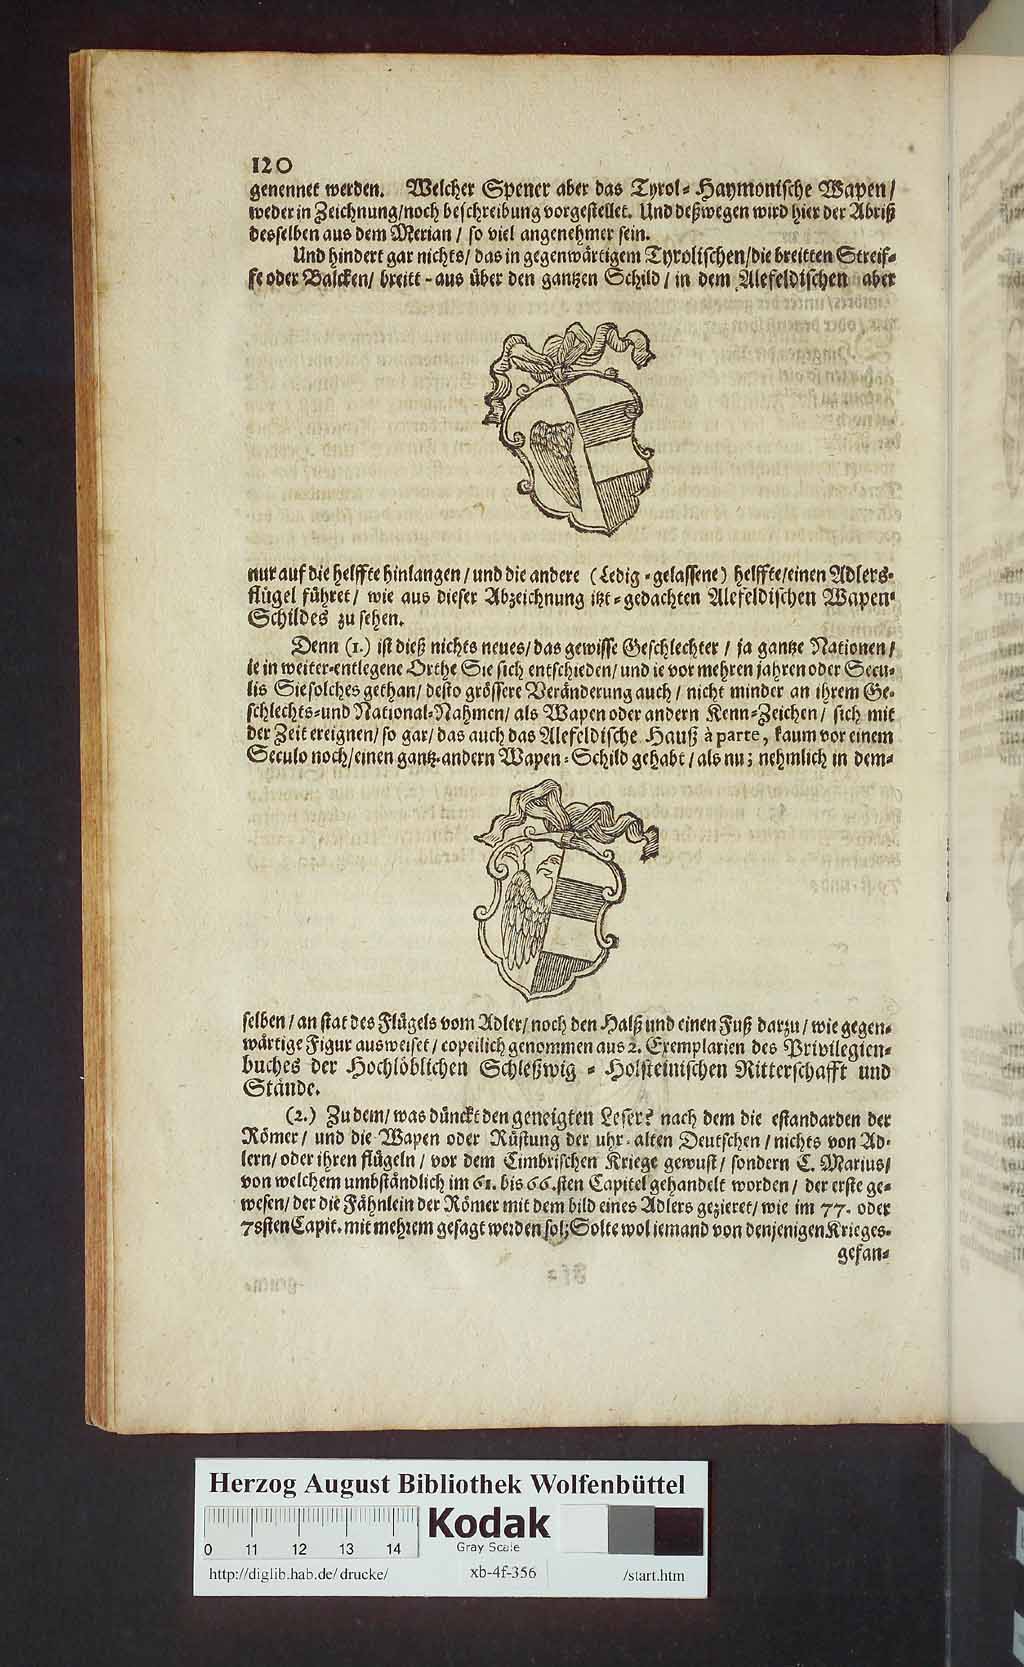 120
genennet werden. Welcher Spener aber das Tyrol- Haymonische Wapen /
weder in Zeichnung/noch beschreibung vorgestellet. Und deßwegen wird hier der Abriß
desselben aus dem Merian / so viel angenehmer sein.
Und hindert gar nichts/ das in gegenwärtigem Tyrolischen/die breitten Streif-
fe oder Balcken/ breitt-aus über den gantzen Schild / in dem Alefeldischen aber
nur auf die helffte hinlangen / und die andere (Ledig-gelassene) helffte/einen Adlers-
flügel führet/ wie aus dieser Abzeichnung itzt-gedachten Alefeldischen Wapen-
Schildes zu sehen.
Denn (1.) ist dieß nichts neues/ das gewisse Geschlechter / ja gantze Nationen /
ie in weiter-entlegene Orthe Sie sich entschieden/ und ie vor mehren jahren oder Secu-
lis Sie solches gethan/ desto grössere Veränderung auch / nicht minder an ihrem Ge-
schlechts-und National-Nahmen/ als Wapen oder andern Kenn-Zeichen / sich mit
der Zeit ereignen/ so gar/ das auch das Alefeldische Hauß à parte, kaum vor einem
Seculo noch/einen gantz-andern Wapen-Schild gehabt / als nu; nehmlich in dem-
selben / an stat des Flügels vom Adler/ noch den Halß und einen Fuß darzu / wie gegen-
wärtige Figur ausweiset / copeilich genommen aus 2. Exemplarien des Privilegien-
buches der Hochlöblichen Schleßwig - Holsteinischen Ritterschafft und
Stände.
(2.) Zu dem/ was dünckt den geneigten Leser? nach dem die estandarden der
Römer / und die Wapen oder Rüstung der uhr-alten Deutschen / nichts von Ad-
lern/ oder ihren flügeln / vor dem Cimbrischen Kriege gewust / sondern C. Marius/
von welchem umbständlich im 61. bis 66.sten Capitel gehandelt worden / der erste ge-
wesen/ der die Fähnlein der Römer mit dem bild eines Adlers gezieret/ wie im 77. oder
78sten Capit. mit mehrem gesagt werden sol; Solte wol iemand von denjenigen Krieges-
gefan-
Herzog August Bibliothek Wolfenbüttel
Kodak
Gray Scale
0 11 12 13 14
http://diglib.hab.de/drucke/ xb-4f-356 /start.htm